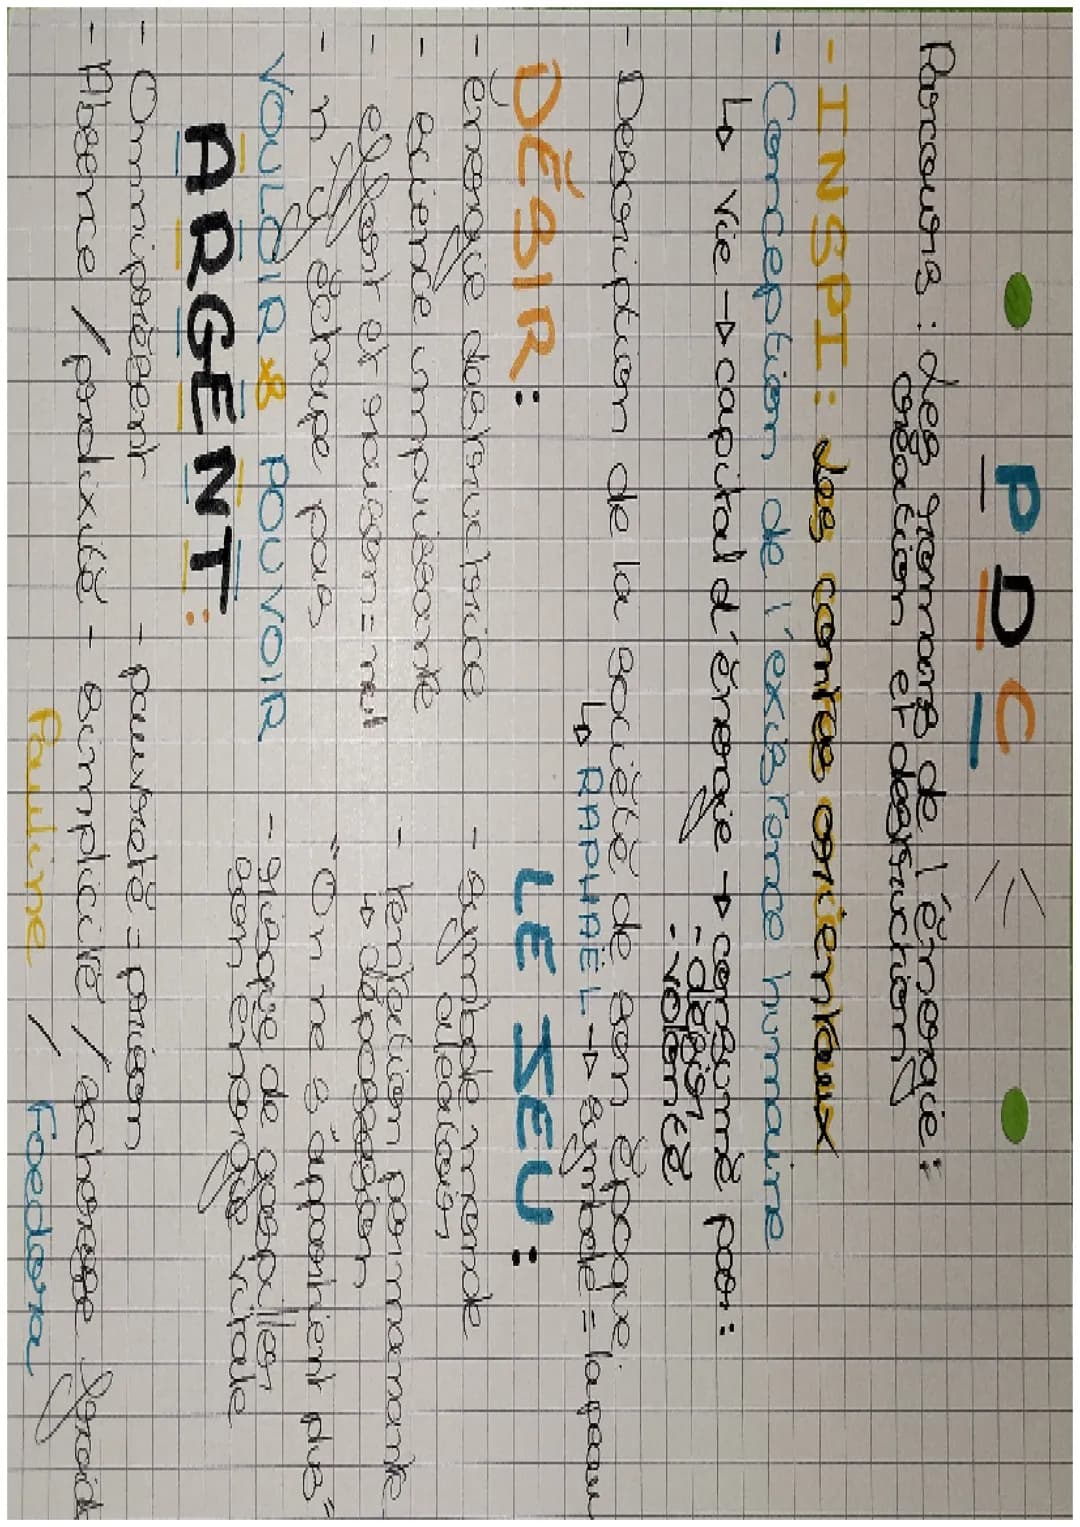 PDC
Parcours : les romans de l'énergie :
création et destruction
- INSPI : les contes orientaux
- Conception de l'existence humaine
↳ Vie → capital d'énergie → consumé par :
- désir
- volonté
- Description de la société de son époque
↳ RAPHAËL → symbole = la peau
DÉSIR :
- énergie destructrice
- science impuissante
- effort et raison = nul
- n'y échappe pas
VOULOIR & POUVOIR
LE JEU :
- symbole monde
aléatoire
- tentation permanente
↳ dépossession
"On ne s'appartient plus"
- risque de gaspiller
son énergie vitale
ARGENT :
- Omniprésent
- Absence / prolixité
- pauvreté = prison
- simplicité / sécheresse froide
Pauline / Foedora